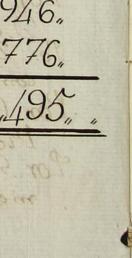 946„
776„
.495„ „